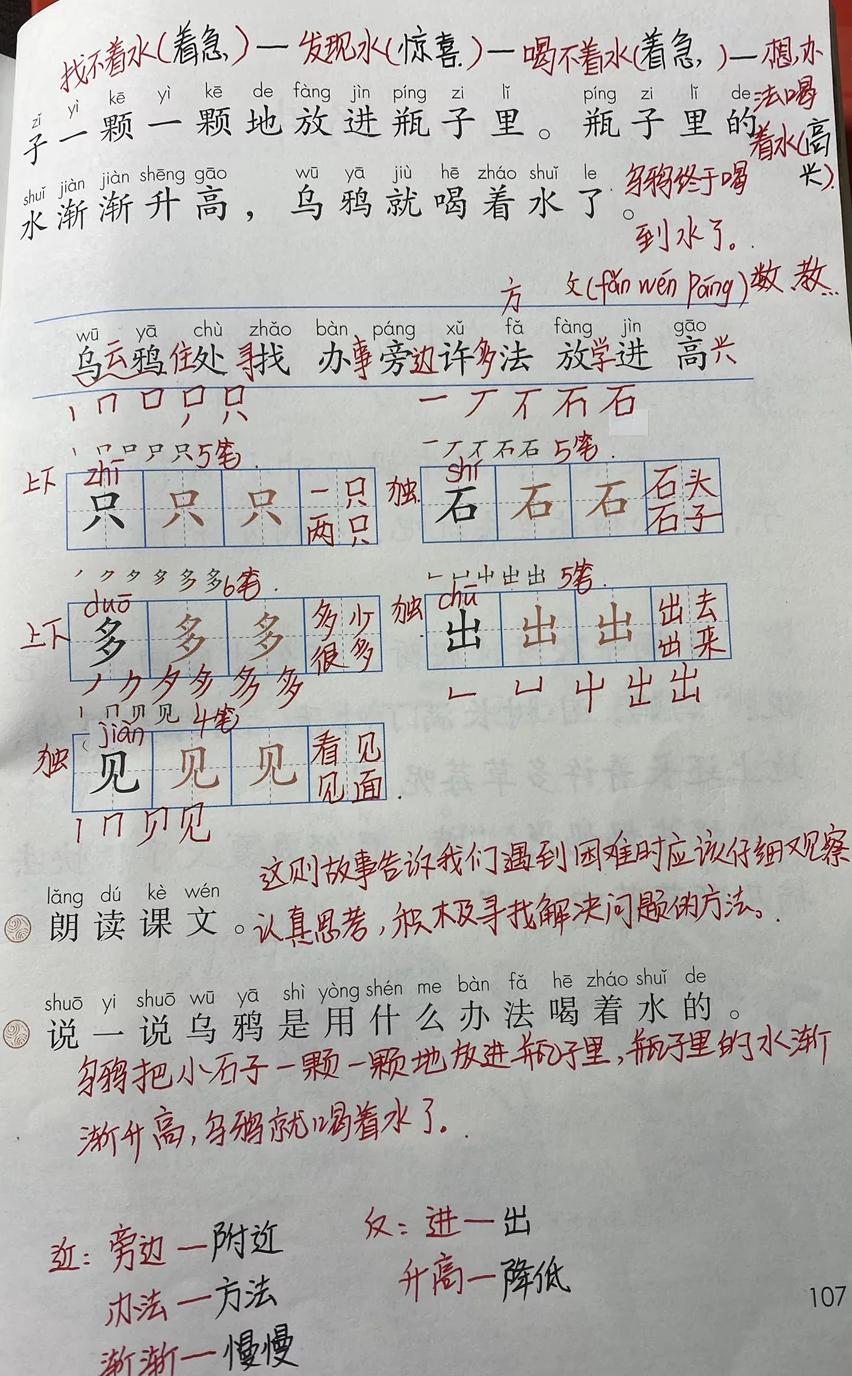 找不着水(着急)—发现水(惊喜)—喝不着水(着急)—想办
法喝
着水(高
兴).
zǐ yì kē yì kē de fàng jìn píng zi lǐ píng zi lǐ de
子一颗一颗地放进瓶子里。瓶子里的
shuǐ jiàn jiàn shēng gāo wū yā jiù hē zháo shuǐ le
水渐渐升高，乌鸦就喝着水了。
乌鸦终于喝
到水了。
方 攵(fǎn wén páng)数 教
wū yā chù zhǎo bàn páng xǔ fǎ fàng jìn gāo
乌云鸦住处寻找 办事旁边许多法 放学进 高兴
丨 冂 口 尸 只 一 丆 丆 石 石
5笔 5笔
上下 zhī 独 shí
只 只 只 一只 石 石 石 石头
两只 石子
6笔 5笔
上下 duō 独 chū
多 多 多 多少 出 出 出 出去
很多 出来
4笔
独 jiàn
见 见 见 看见
见面
丨 冂 贝 见
这则故事告诉我们遇到困难时应该仔细观察
lǎng dú kè wén
朗读课文。认真思考，积极寻找解决问题的方法。
shuō yi shuō wū yā shì yòng shén me bàn fǎ hē zháo shuǐ de
说一说乌鸦是用什么办法喝着水的。
乌鸦把小石子一颗一颗地放进瓶子里，瓶子里的水渐
渐升高，乌鸦就喝着水了。
近：旁边—附近 反：进—出
办法—方法 升高—降低
渐渐—慢慢
107